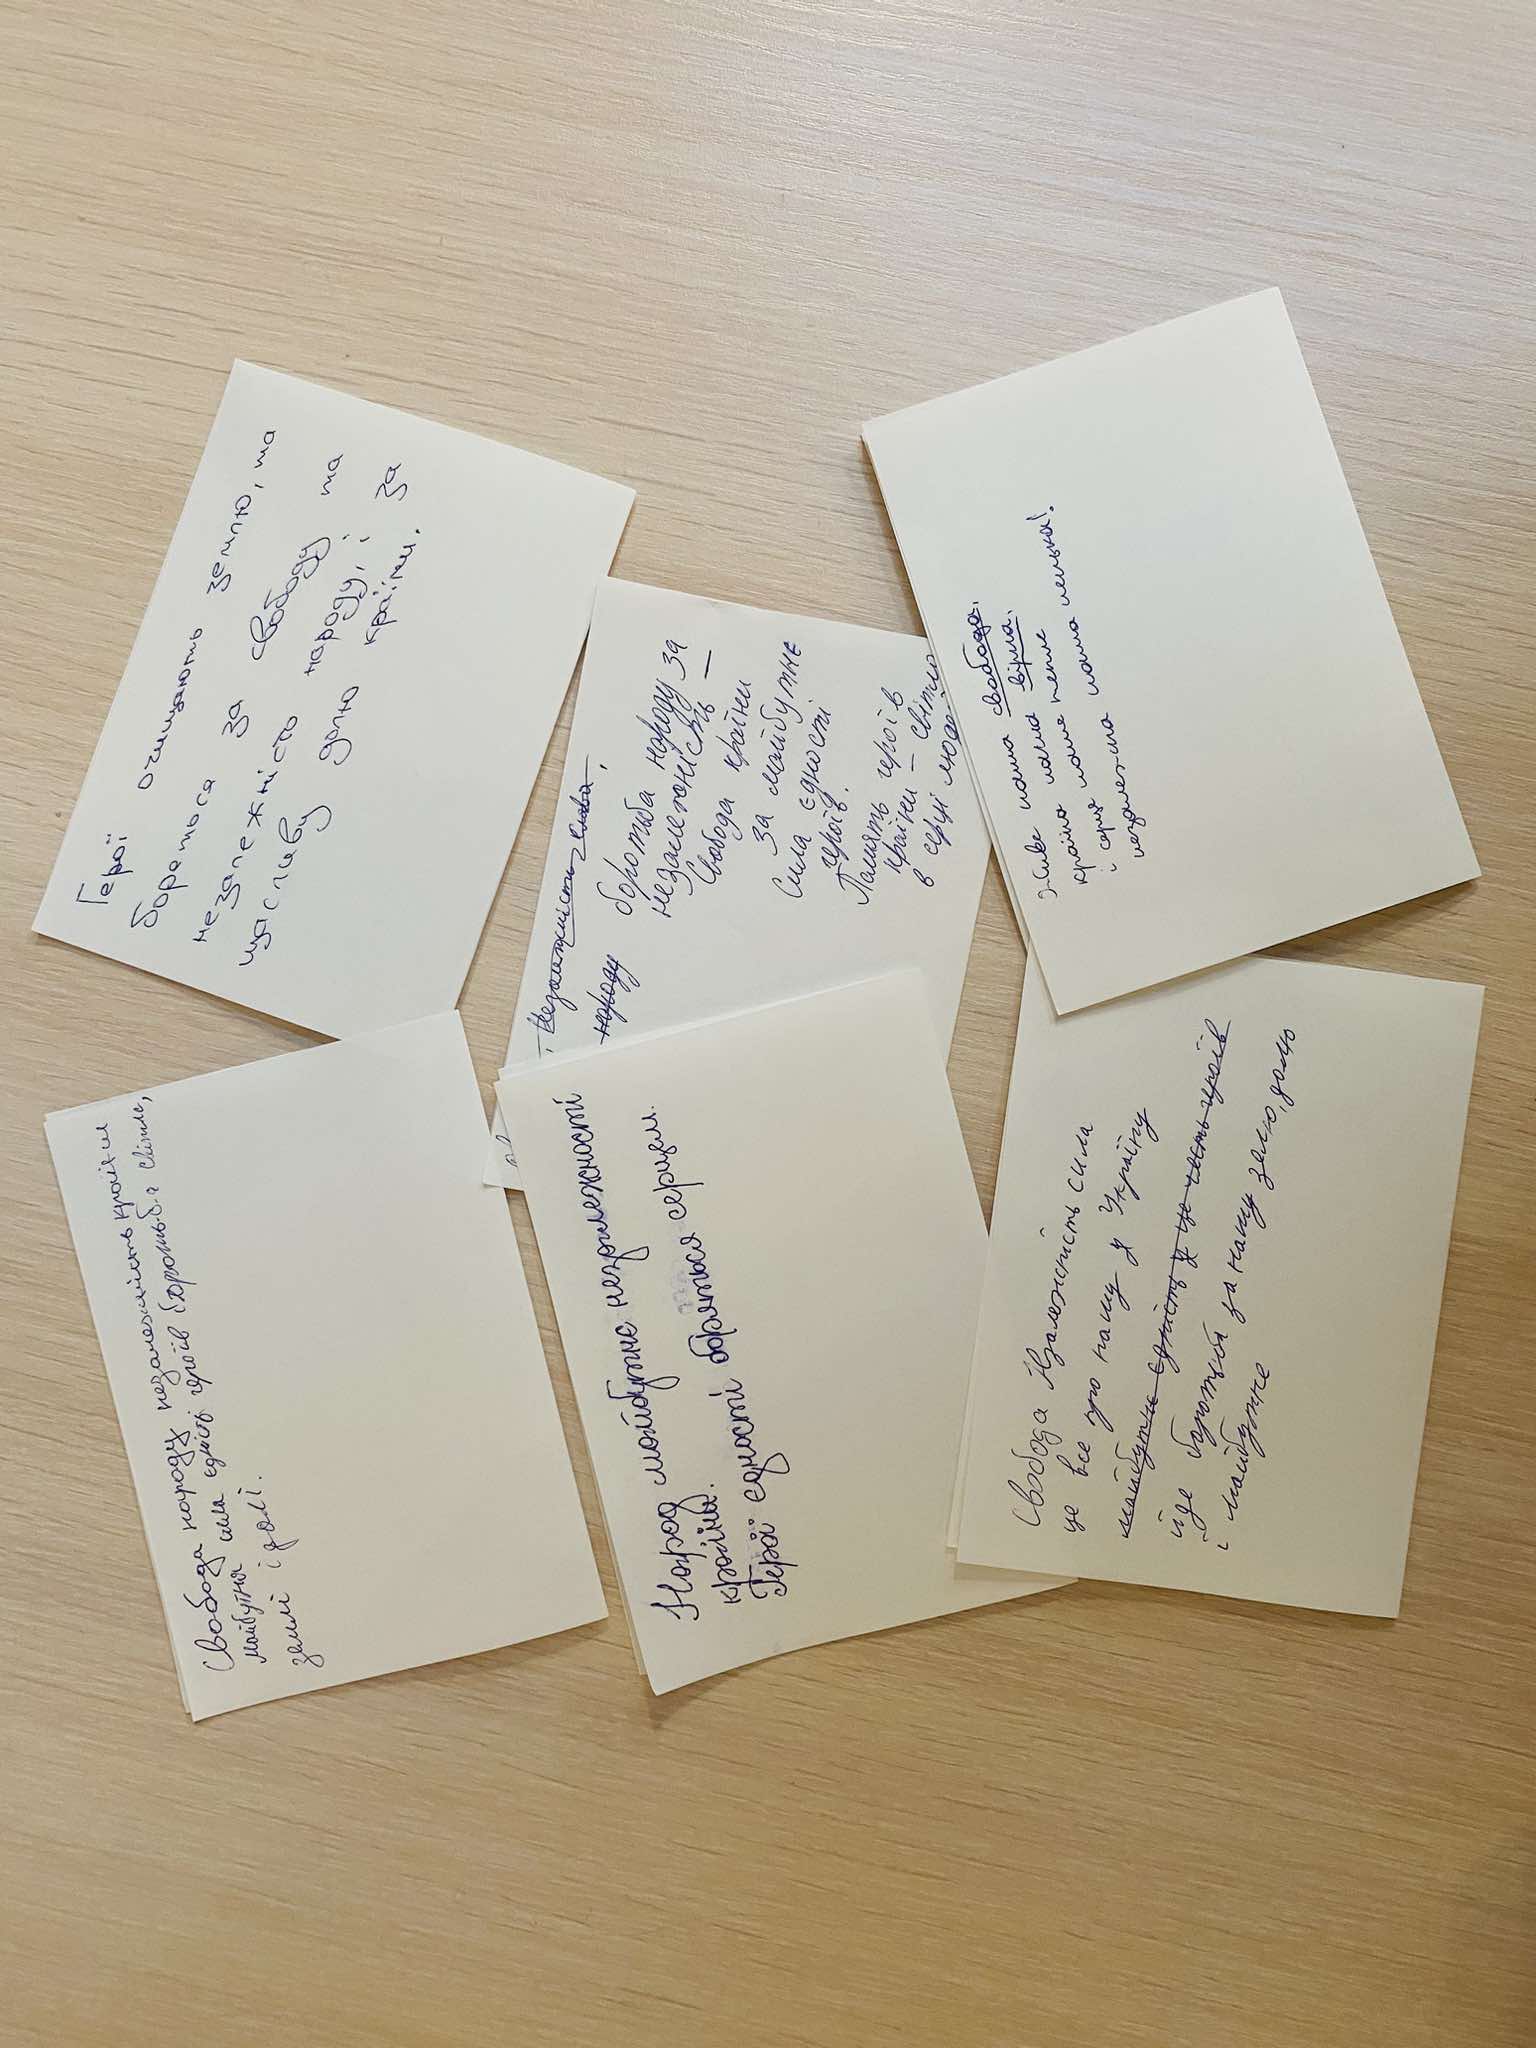 Герої очищають землю, та
борються за свободу та
незалежність народу, і за
щасливу долю країни.
Незалежність слава,
народу боротьба народу за
незалежність —
Свобода країни
за майбутнє
Сила єдності
героїв.
Память героїв
країни – світло
в серці людей
Живе наша свобода.
країна наша вірша.
і серце наше пение
незалежна наша ненька!
Свобода народу незалежність країни
майбутня сила єдність героїв боротьба світле,
землі і долі.
Народ майбутнє незрилежності
країни.
Герої єдності борються серцем.
Свобода Нзалежність сила
це все про нашу у Україну
майбутнє єдність у це честь героїв
йде боротьба за нашу землю, долю
і майбутнє